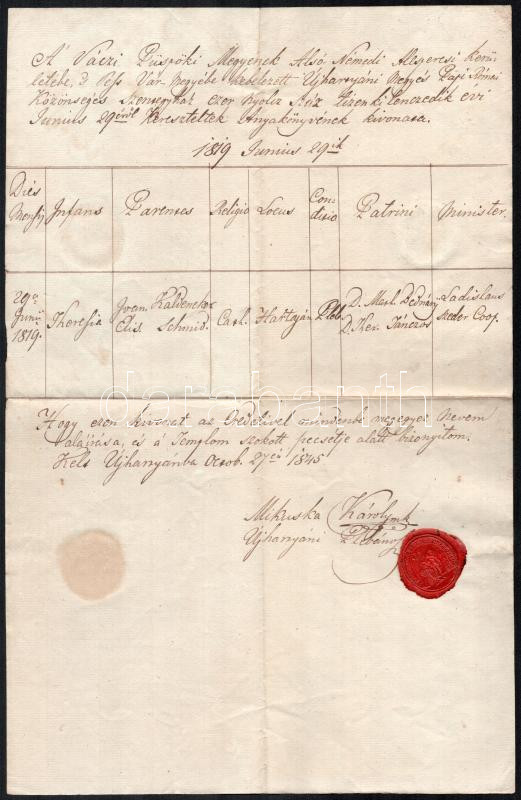 A' Váczi Püspöki Megyének Alsó Némedi Alesperesi Kerü
letébe, 's Pest Vár megyébe Ujhartyáni
Közönséges Szentegyház ezer nyolcz Száz tizenkilenczedik évi
Junius 29iről Kereszteltek Anyakönyvének kivonata.
1819 Junius 29ik
Dies Mensis Infans Parentes Religio Locus Con- ditio Patrini Minister.
29a Junii 1819. Theresia Joan Kaldeneker Elis Schmid. Cath. Hartyán Pleb. D. Math. D. Ladislaus Coop.
Hogy ezen kivonat az Eredetivel mindenbe megegyez nevem
aláirása, és a' Templom szokott pecsétje alatt bizonyitom.
Kelt Ujhartyánba Octob. 27én 1845
Mikuska Károly mk
Ujhartyáni Plébános
darabanth